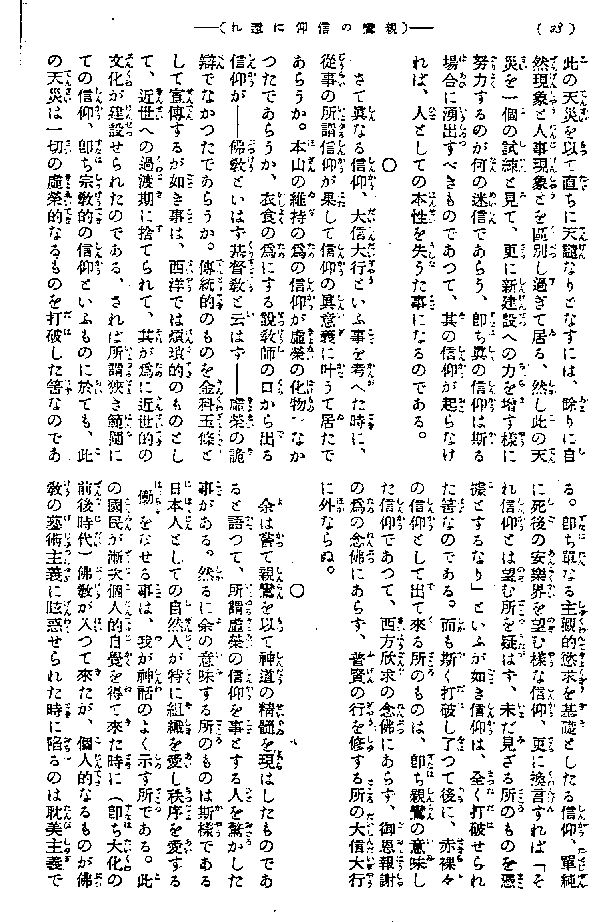 (23)
―(親鸞の信仰に還れ)―
此の天災を以て直ちに天譴なりとなすには、餘りに自
然現象と人事現象とを區別し過ぎて居る、然し此の天
災を一個の試練と見て、更に新建設への力を増す樣に
努力するのが何の迷信であらう、卽ち眞の信仰は斯る
場合に湧出すべきものであつて、其の信仰が起らなけ
れば、人としての本性を失うた事になるのである。
○
さて眞なる信仰、大信大行といふ事を考へた時に、
從事の所謂信仰が果して信仰の眞意義に叶うて居たで
あらうか。本山の維持の爲の信仰が虛榮の化物でなか
つたであらうか、衣食の爲にする說敎師の口から出る
信仰が――佛敎といはず基督敎と云はず――虛榮の詭
辯でなかつたであらうか。傳統的のものを金科玉條と
して宣傳するが如き事は、西洋では煩瑣的のものとし
て、近世への過渡期に捨てられて、其が爲に近世的の
文化が建設せられたのである、されば所謂狹き範圍に
ての信仰、卽ち宗敎的の信仰といふものに於ても、此
の天災は一切の虛榮的なるものを打破した筈なのであ
る。卽ち單なる主觀的慾求を基礎としたる信仰、單純
に死後の安樂界を望む樣な信仰、更に換言すれば「そ
れ信仰とは望む所を疑はず、未だ見ざる所のものを憑
據とするなり」といふが如き信仰は、全く打破せられ
た筈なのである。而も斯く打破し了つて後に、赤裸々
の信仰として出て來る所のものは、卽ち親鸞の意味し
た信仰であつて、西方欣求の念佛にあらず、御恩報謝
の爲の念佛にあらず、普賢の行を修する所の大信大行
に外ならぬ。
○
余は嘗て親鸞を以て神道の精髓を現はしたものであ
ると語つて、所謂虛榮の信仰を事とする人を驚かした
事がある。然るに余の意味する所のものは斯樣である
日本人としての自然人が特に組織を愛し秩序を愛する
働きをなせる事は、我が神話のよく示す所である。此
の國民が漸次個人的自覺を得て來た時に(卽ち大化の
前後時代)佛敎が入つて來たが、個人的なるものが佛
敎の藝術主義に眩惑せられた時に陷るのは耽美主義で